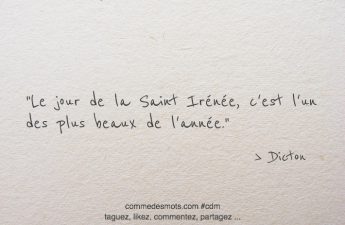 "Le jour de la Saint Irénée, c'est l'un
des plus beaux de l'année."
> Dicton
commedesmots.com #cdm
taguez, likez, commentez, partagez ...